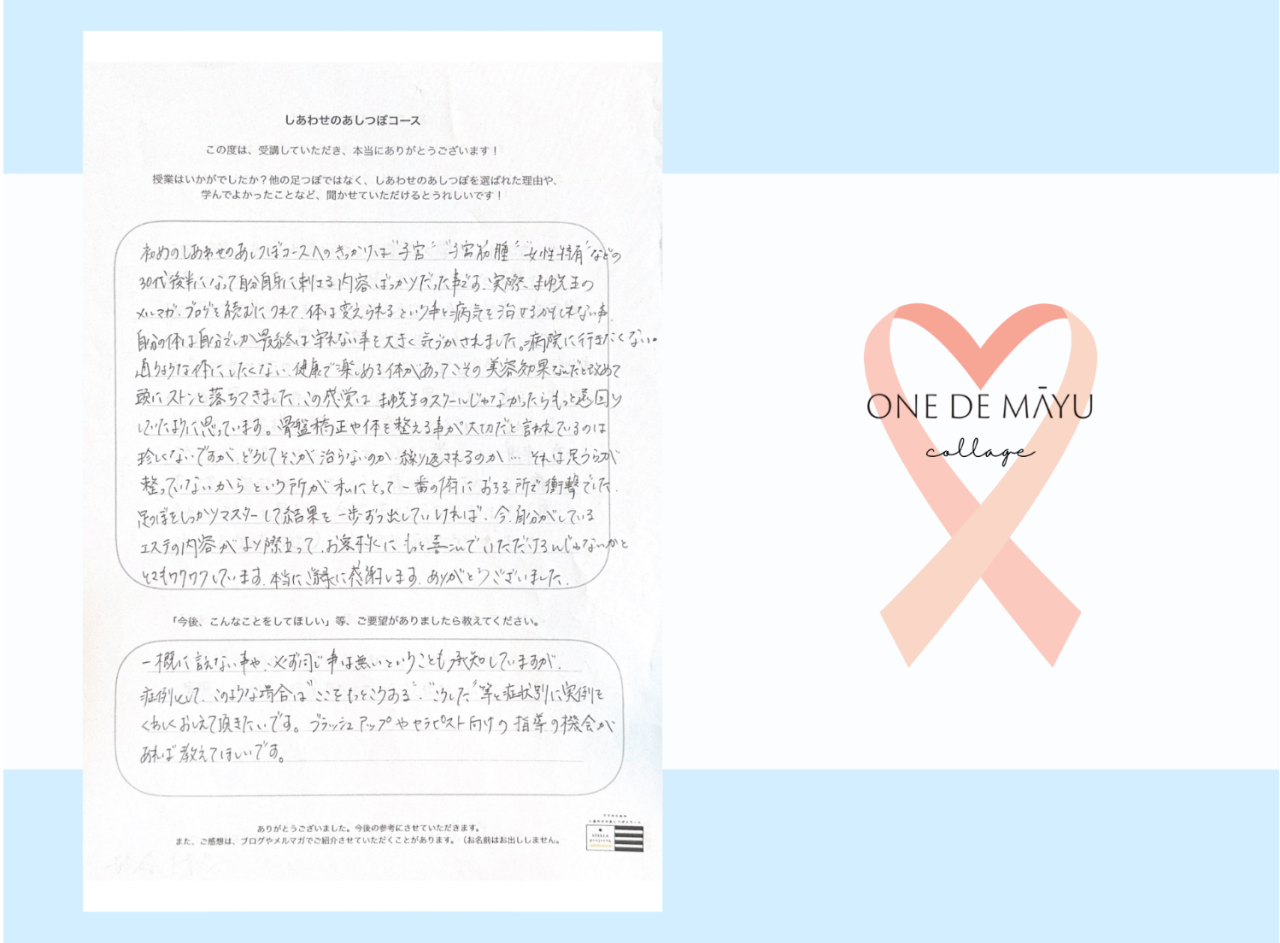 しあわせのあしつぼコース
この度は、受講していただき、本当にありがとうございます！
授業はいかがでしたか？他の足つぼではなく、しあわせのあしつぼを選ばれた理由や、
学んでよかったことなど、聞かせていただけるとうれしいです！
初めのしあわせのあしつぼコースへのきっかけは"子宮" "子宮筋腫" "女性特有"などの
30代後半になって自分自身に刺さる内容ばっかりだった事です。実際、まゆ先生の
メルマガ、ブログを読むにつれて、体は変えられるという事と病気を治せるかもしれない事、
自分の体は自分でしか最終は守れない事を大きく気づかされました。病院に行きたくない。
直ような体にしたくない、健康で楽しめる体があってこその美容効果なんだと改めて
頭にストンと落ちてきました。この感覚はまゆ先生のスクールじゃなかったらもっと遠回り
していたように思っています。骨盤矯正や体を整える事が大切だと言われているのは
珍しくないですが、どうしてそこが治らないのか、繰り返されるのか… それは足うらが
整っていないから という所が私にとって一番の府におちる所で衝撃でした。
足つぼをしっかりマスターして結果を一歩ずつ出していければ、今、自分がしている
エステの内容がより際立って、お客様にもっと喜こんでいただけるんじゃないかと
とてもワクワクしています。本当にご縁に感謝します。ありがとうございました。
「今後、こんなことをしてほしい」等、ご要望がありましたら教えてください。
一概に言えない事や、必ず同じ事は無いということも承知していますが、
症例として、このような場合は"ここをもっとこうする"、"こうした"等と症状別に実例を
くわしくおしえて頂きたいです。ブラッシュアップやセラピスト向けの指導の機会が
あれば教えてほしいです。
ありがとうございました。今後の参考にさせていただきます。
また、ご感想は、ブログやメルマガでご紹介させていただくことがあります。（お名前はお出ししません。
ONE DE MĀYU
collage